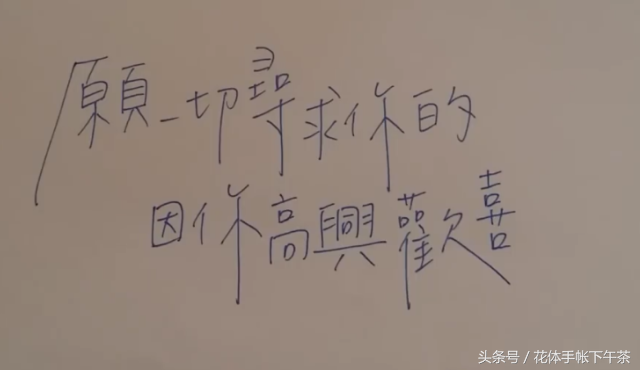 願一切尋求你的
因你高興歡喜
头条号 / 花体手帐下午茶